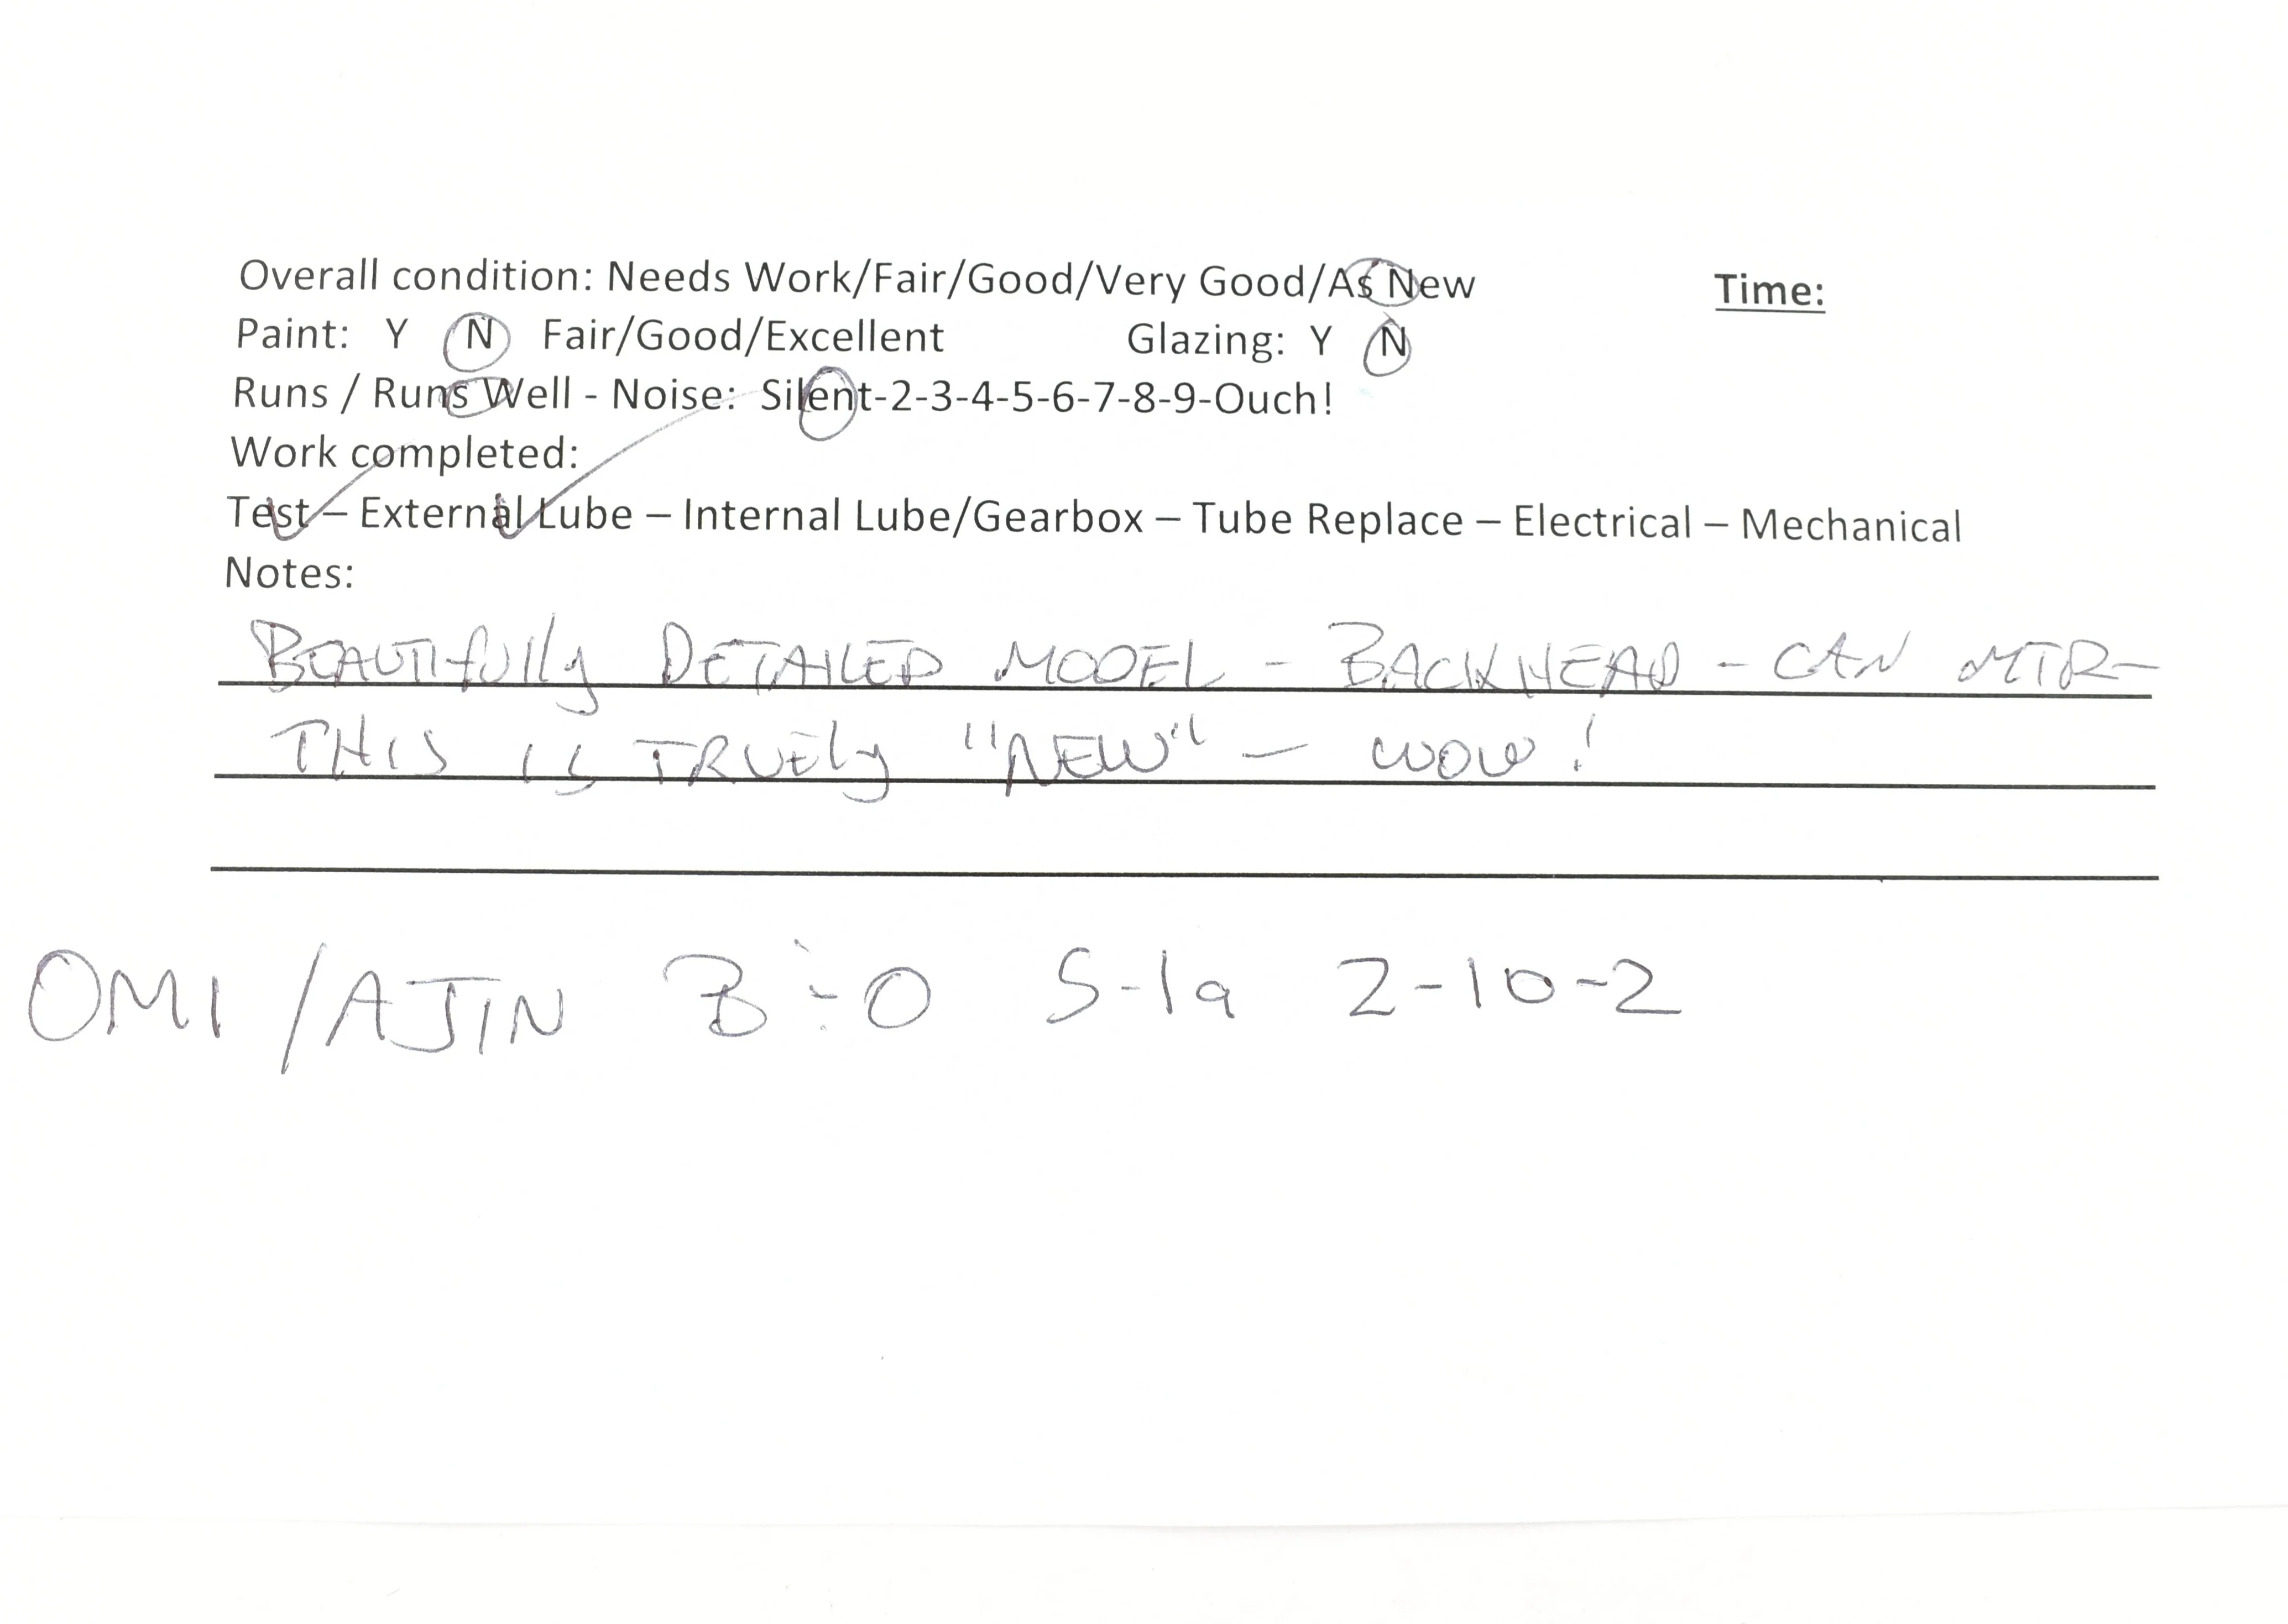 Overall condition: Needs Work/Fair/Good/Very Good/As New Time:
Paint: Y N Fair/Good/Excellent Glazing: Y N
Runs / Runs Well - Noise: Silent-2-3-4-5-6-7-8-9-Ouch!
Work completed:
Test – External Lube – Internal Lube/Gearbox – Tube Replace – Electrical – Mechanical
Notes:
BEAUTIFULLY DETAILED MODEL - BACKHEAD - CAN MTR-
THIS IS TRUELY "NEW" - WOW!
OMI/AJIN B÷O S-1a 2-10-2